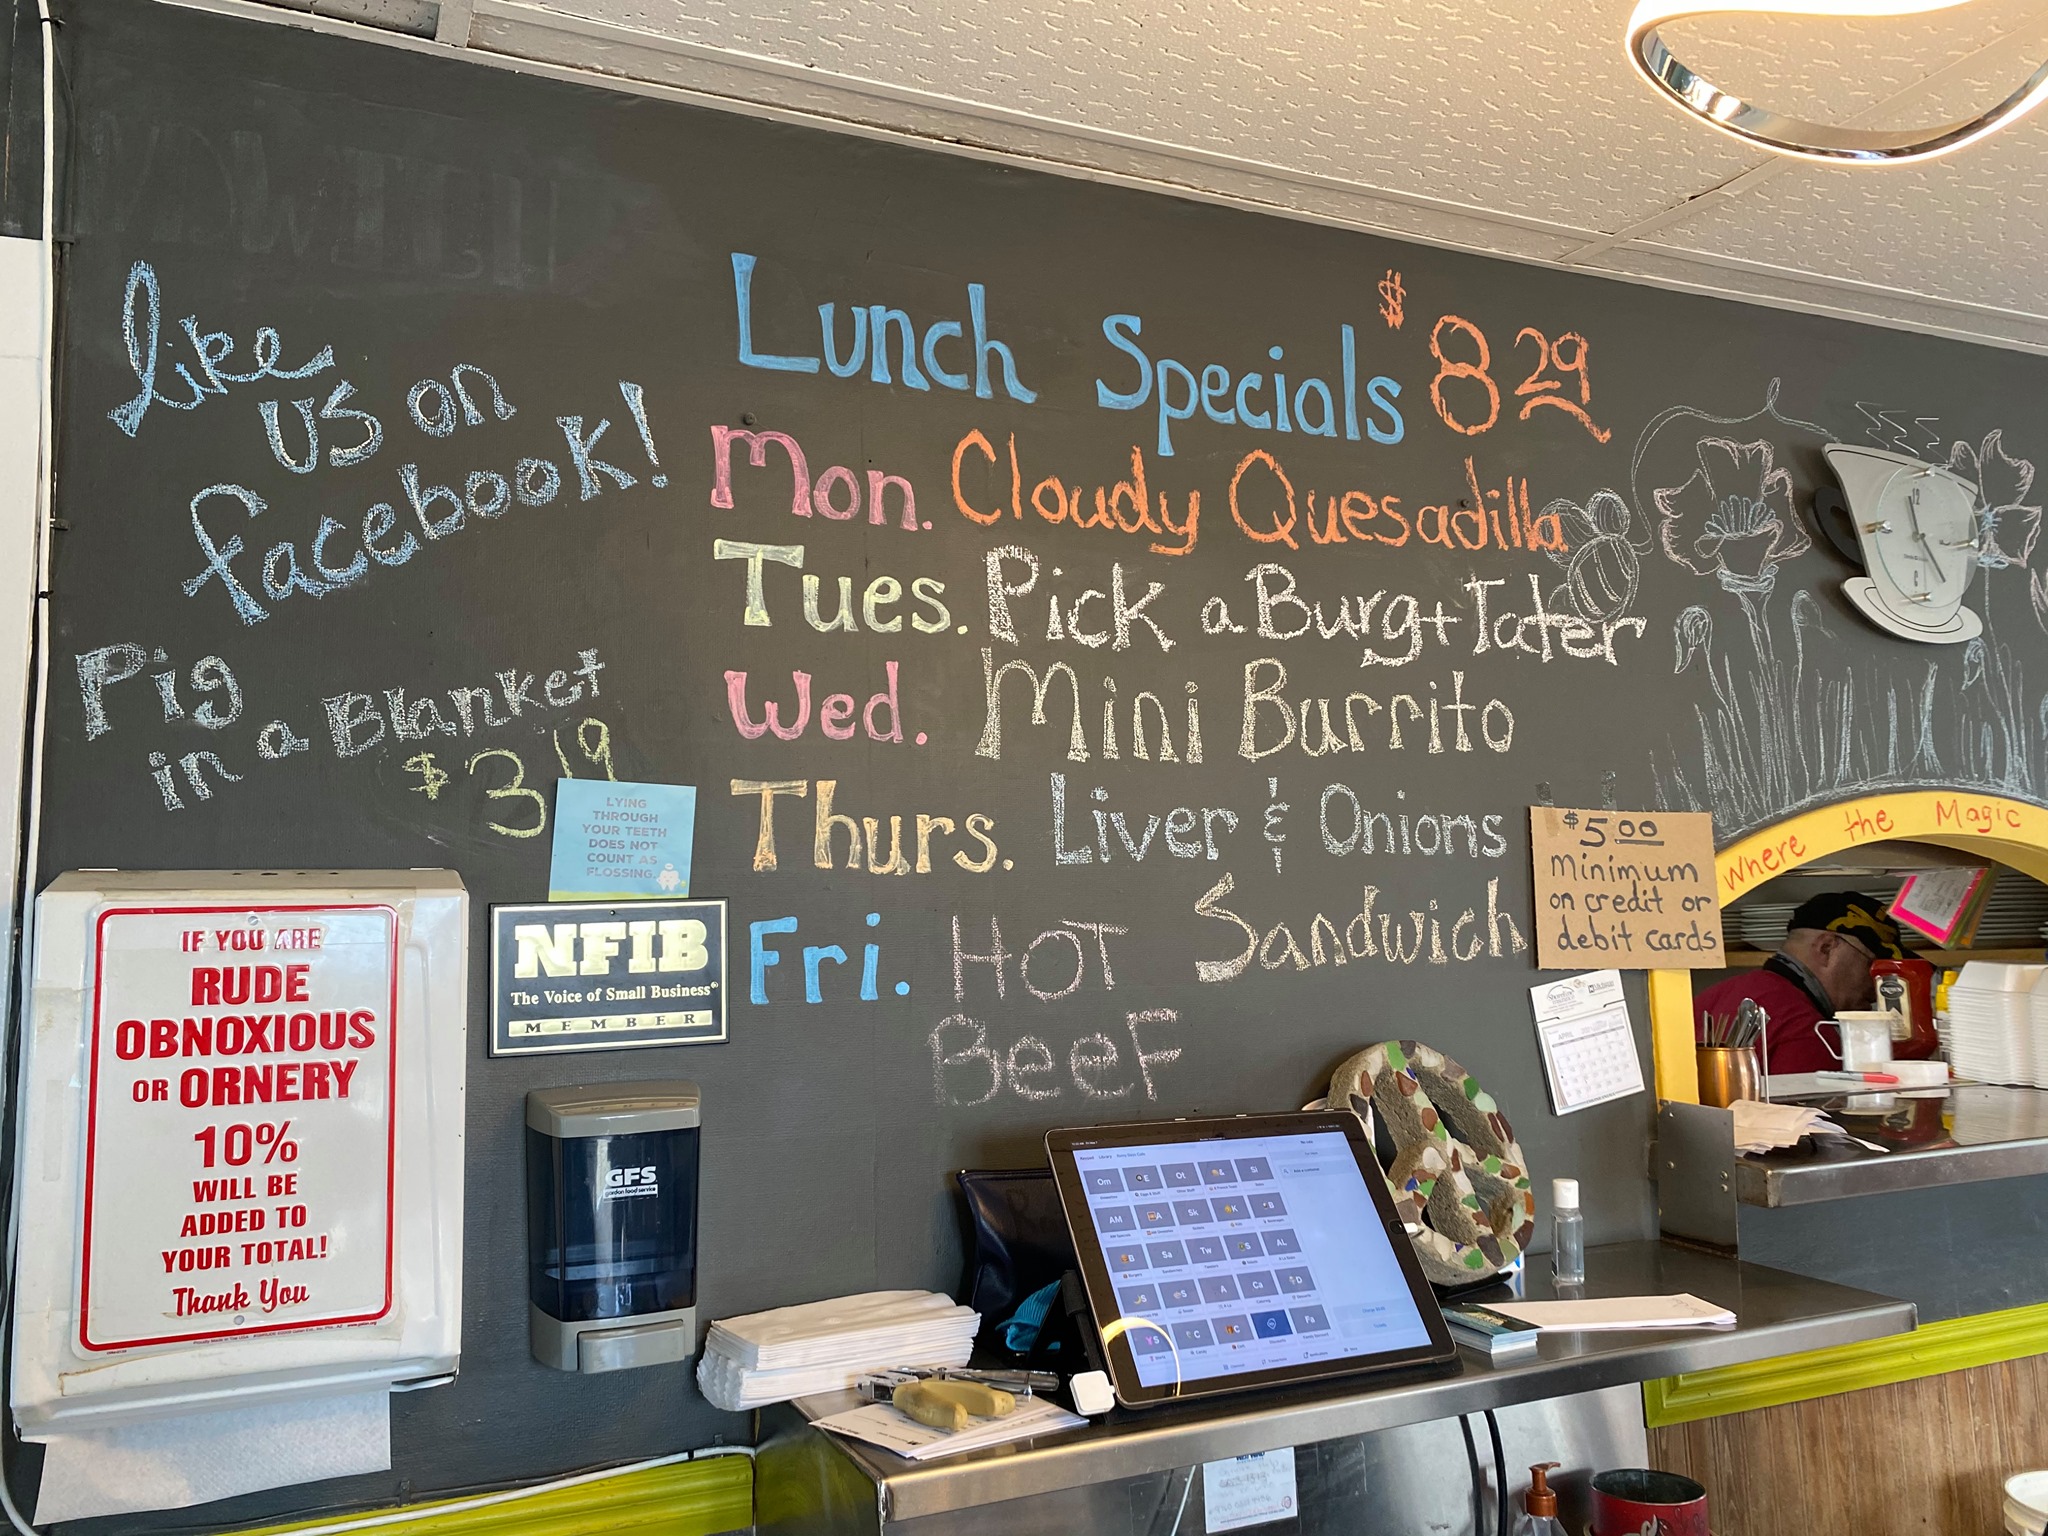 Like
us on
facebook!
Pig
in a Blanket
$3 19
Lunch Specials $8 29
Mon. Cloudy Quesadilla
Tues. Pick a Burg+Tater
Wed. Mini Burrito
Thurs. Liver & Onions
Fri. HOT Sandwich
BeeF
LYING
THROUGH
YOUR TEETH
DOES NOT
COUNT AS
FLOSSING.
IF YOU ARE
RUDE
OBNOXIOUS
OR ORNERY
10%
WILL BE
ADDED TO
YOUR TOTAL!
Thank You
NFIB
The Voice of Small Business®
MEMBER
GFS
gordon food service
$5.00
Minimum
on credit or
debit cards
Where the Magic
APRIL
12
Om
E
Ot
&
Si
AM
A
Sk
K
B
B
Sa
Tw
S
AL
S
S
A
Ca
D
S
C
C
Fa